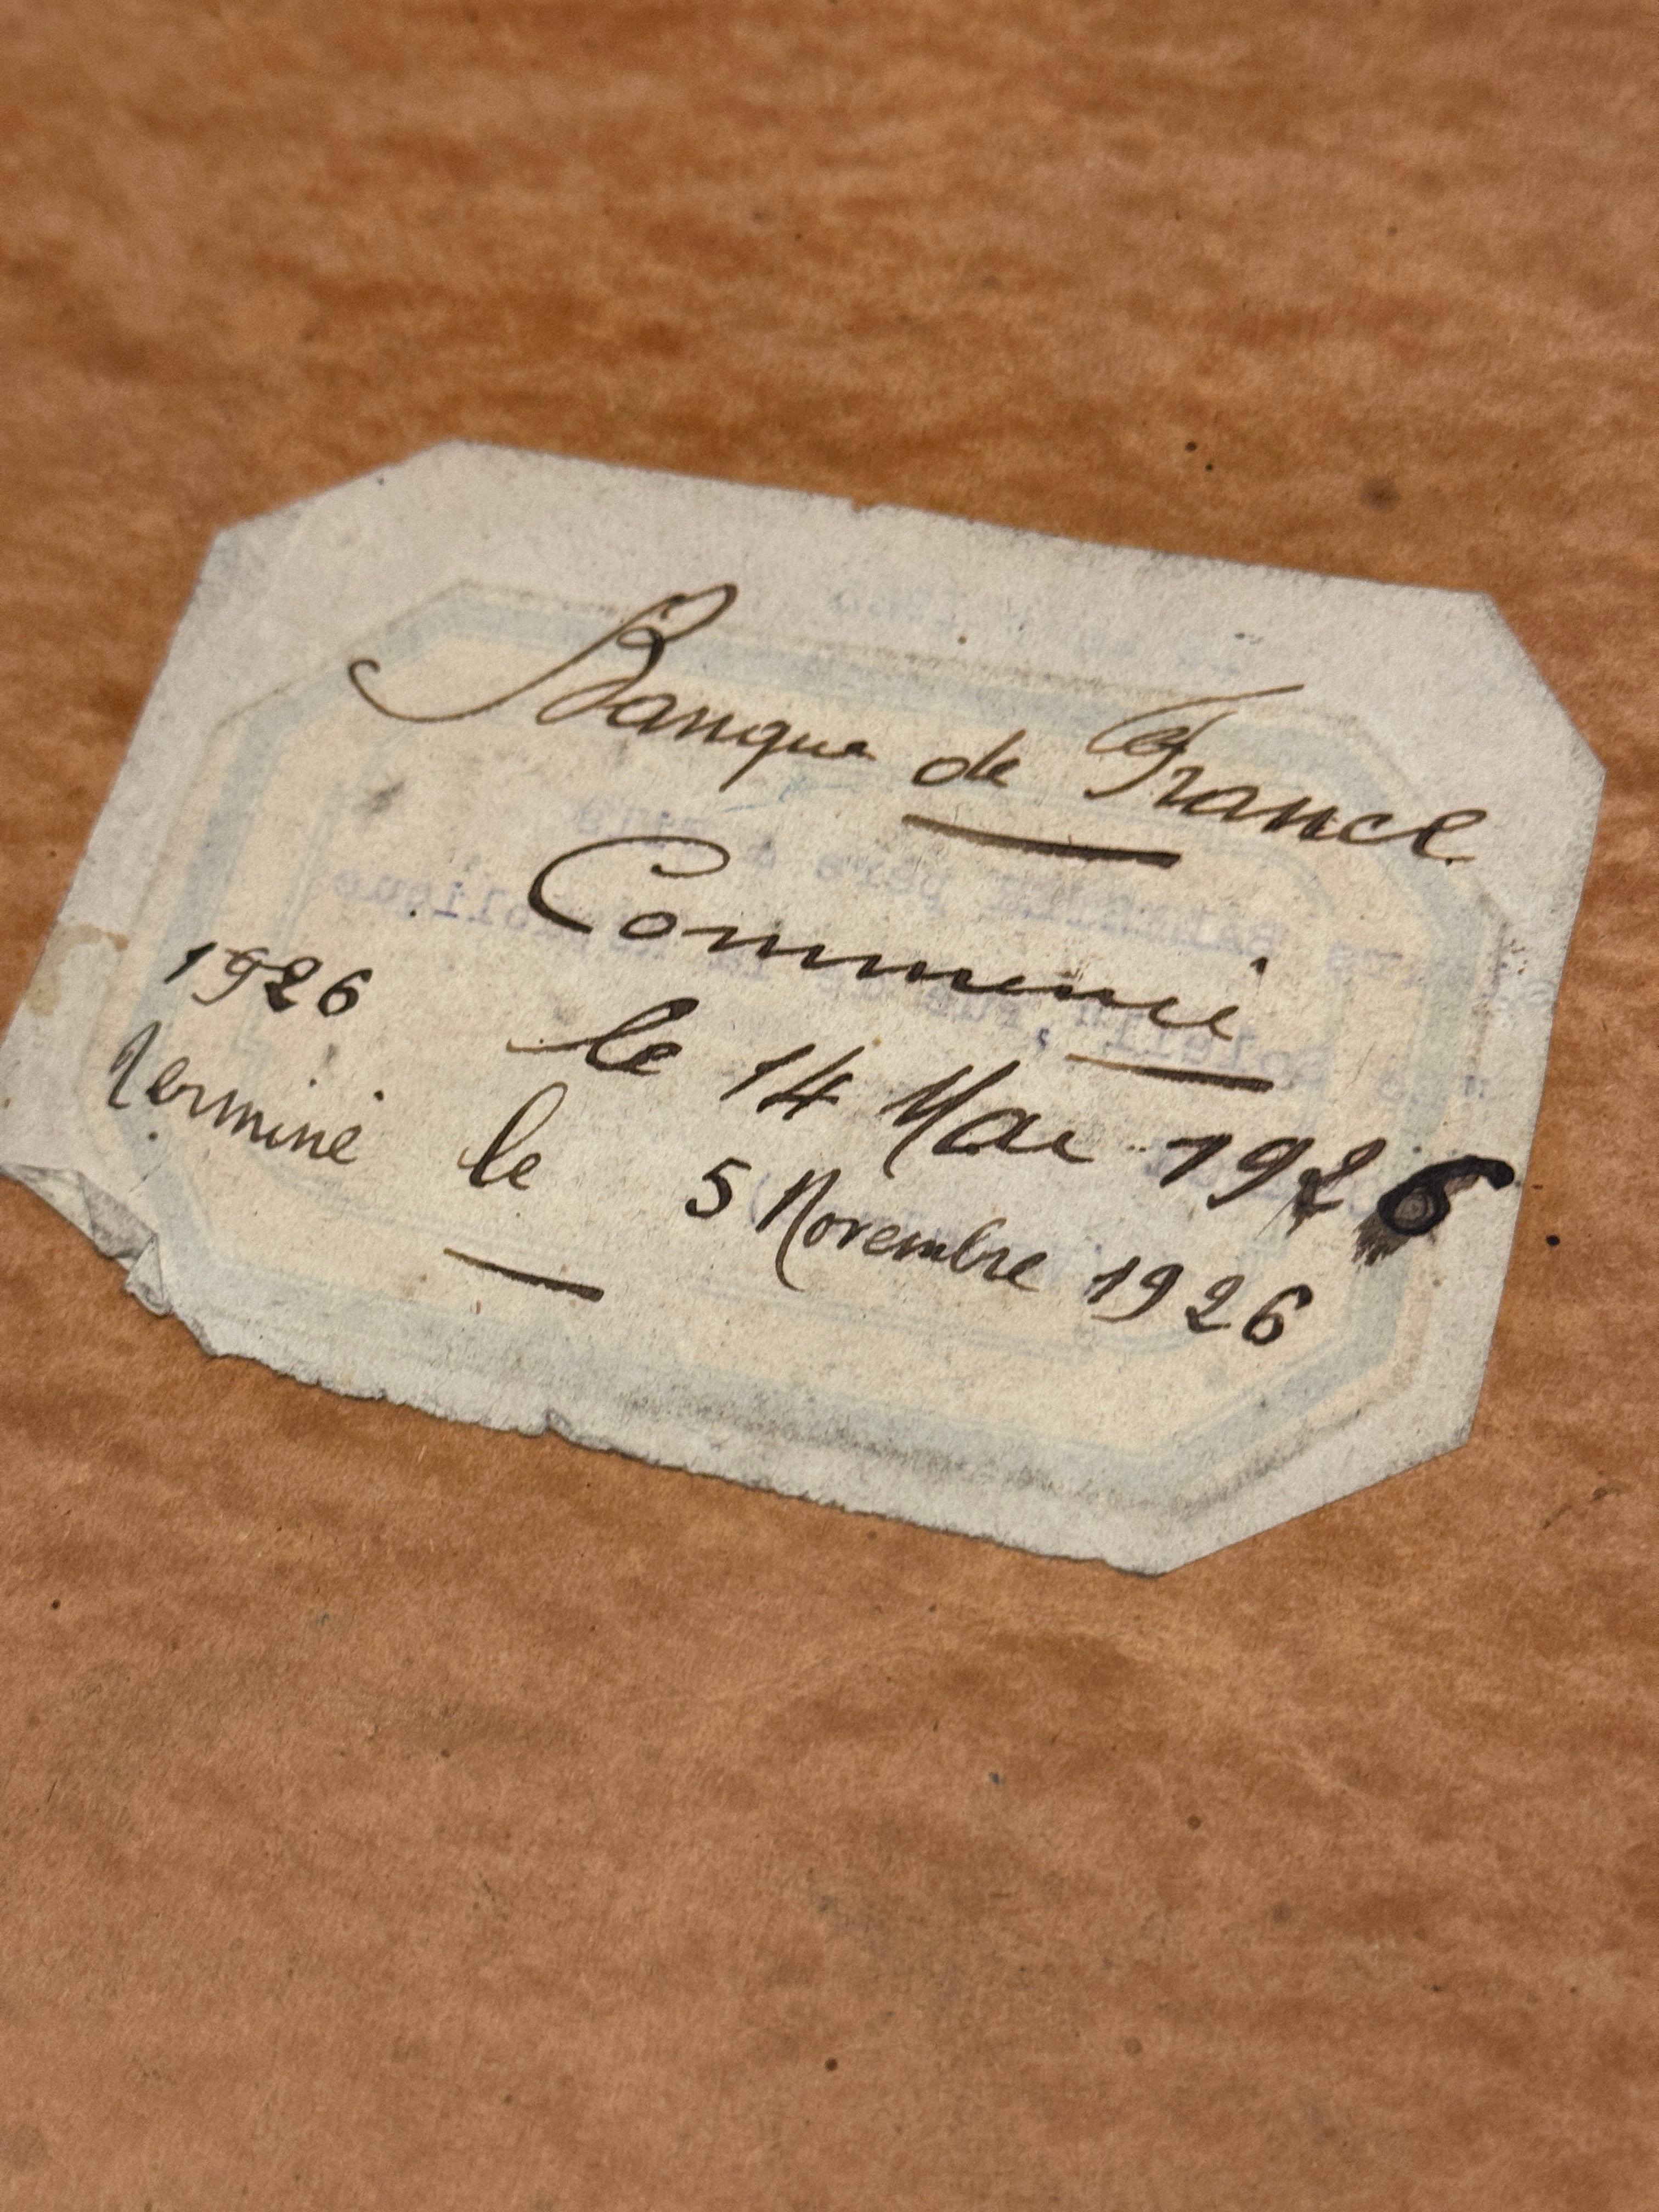 Banque de France
Commencé
1926 le 14 Mai 1926
Terminé le 5 Novembre 1926